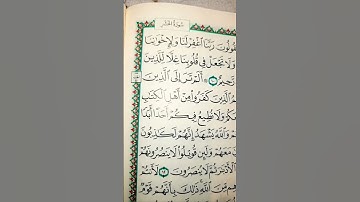 سورة الحشر
قُولُونَ رَبَّنَا اغْفِرْ لَنَا وَلِإِخْوَانِنَا
وَلَا تَجْعَلْ فِي قُلُوبِنَا غِلًّا لِلَّذِينَ
رَحِيمٌ ۝١٠ أَلَمْ تَرَ إِلَى الَّذِينَ
هِمُ الَّذِينَ كَفَرُوا مِنْ أَهْلِ الْكِتَٰبِ
كُمْ وَلَا نُطِيعُ فِيكُمْ أَحَدًا أَبَدًا
وَاللَّهُ يَشْهَدُ إِنَّهُمْ لَكَاذِبُونَ
نَ مَعَهُمْ وَلَئِنْ قُوتِلُوا لَا يَنْصُرُونَهُمْ
الْأَدْبَارَ ثُمَّ لَا يُنْصَرُونَ ۝١٢ لَأَنْتُمْ
هِمْ مِنَ اللَّهِ ذَٰلِكَ بِأَنَّهُمْ قَوْمٌ